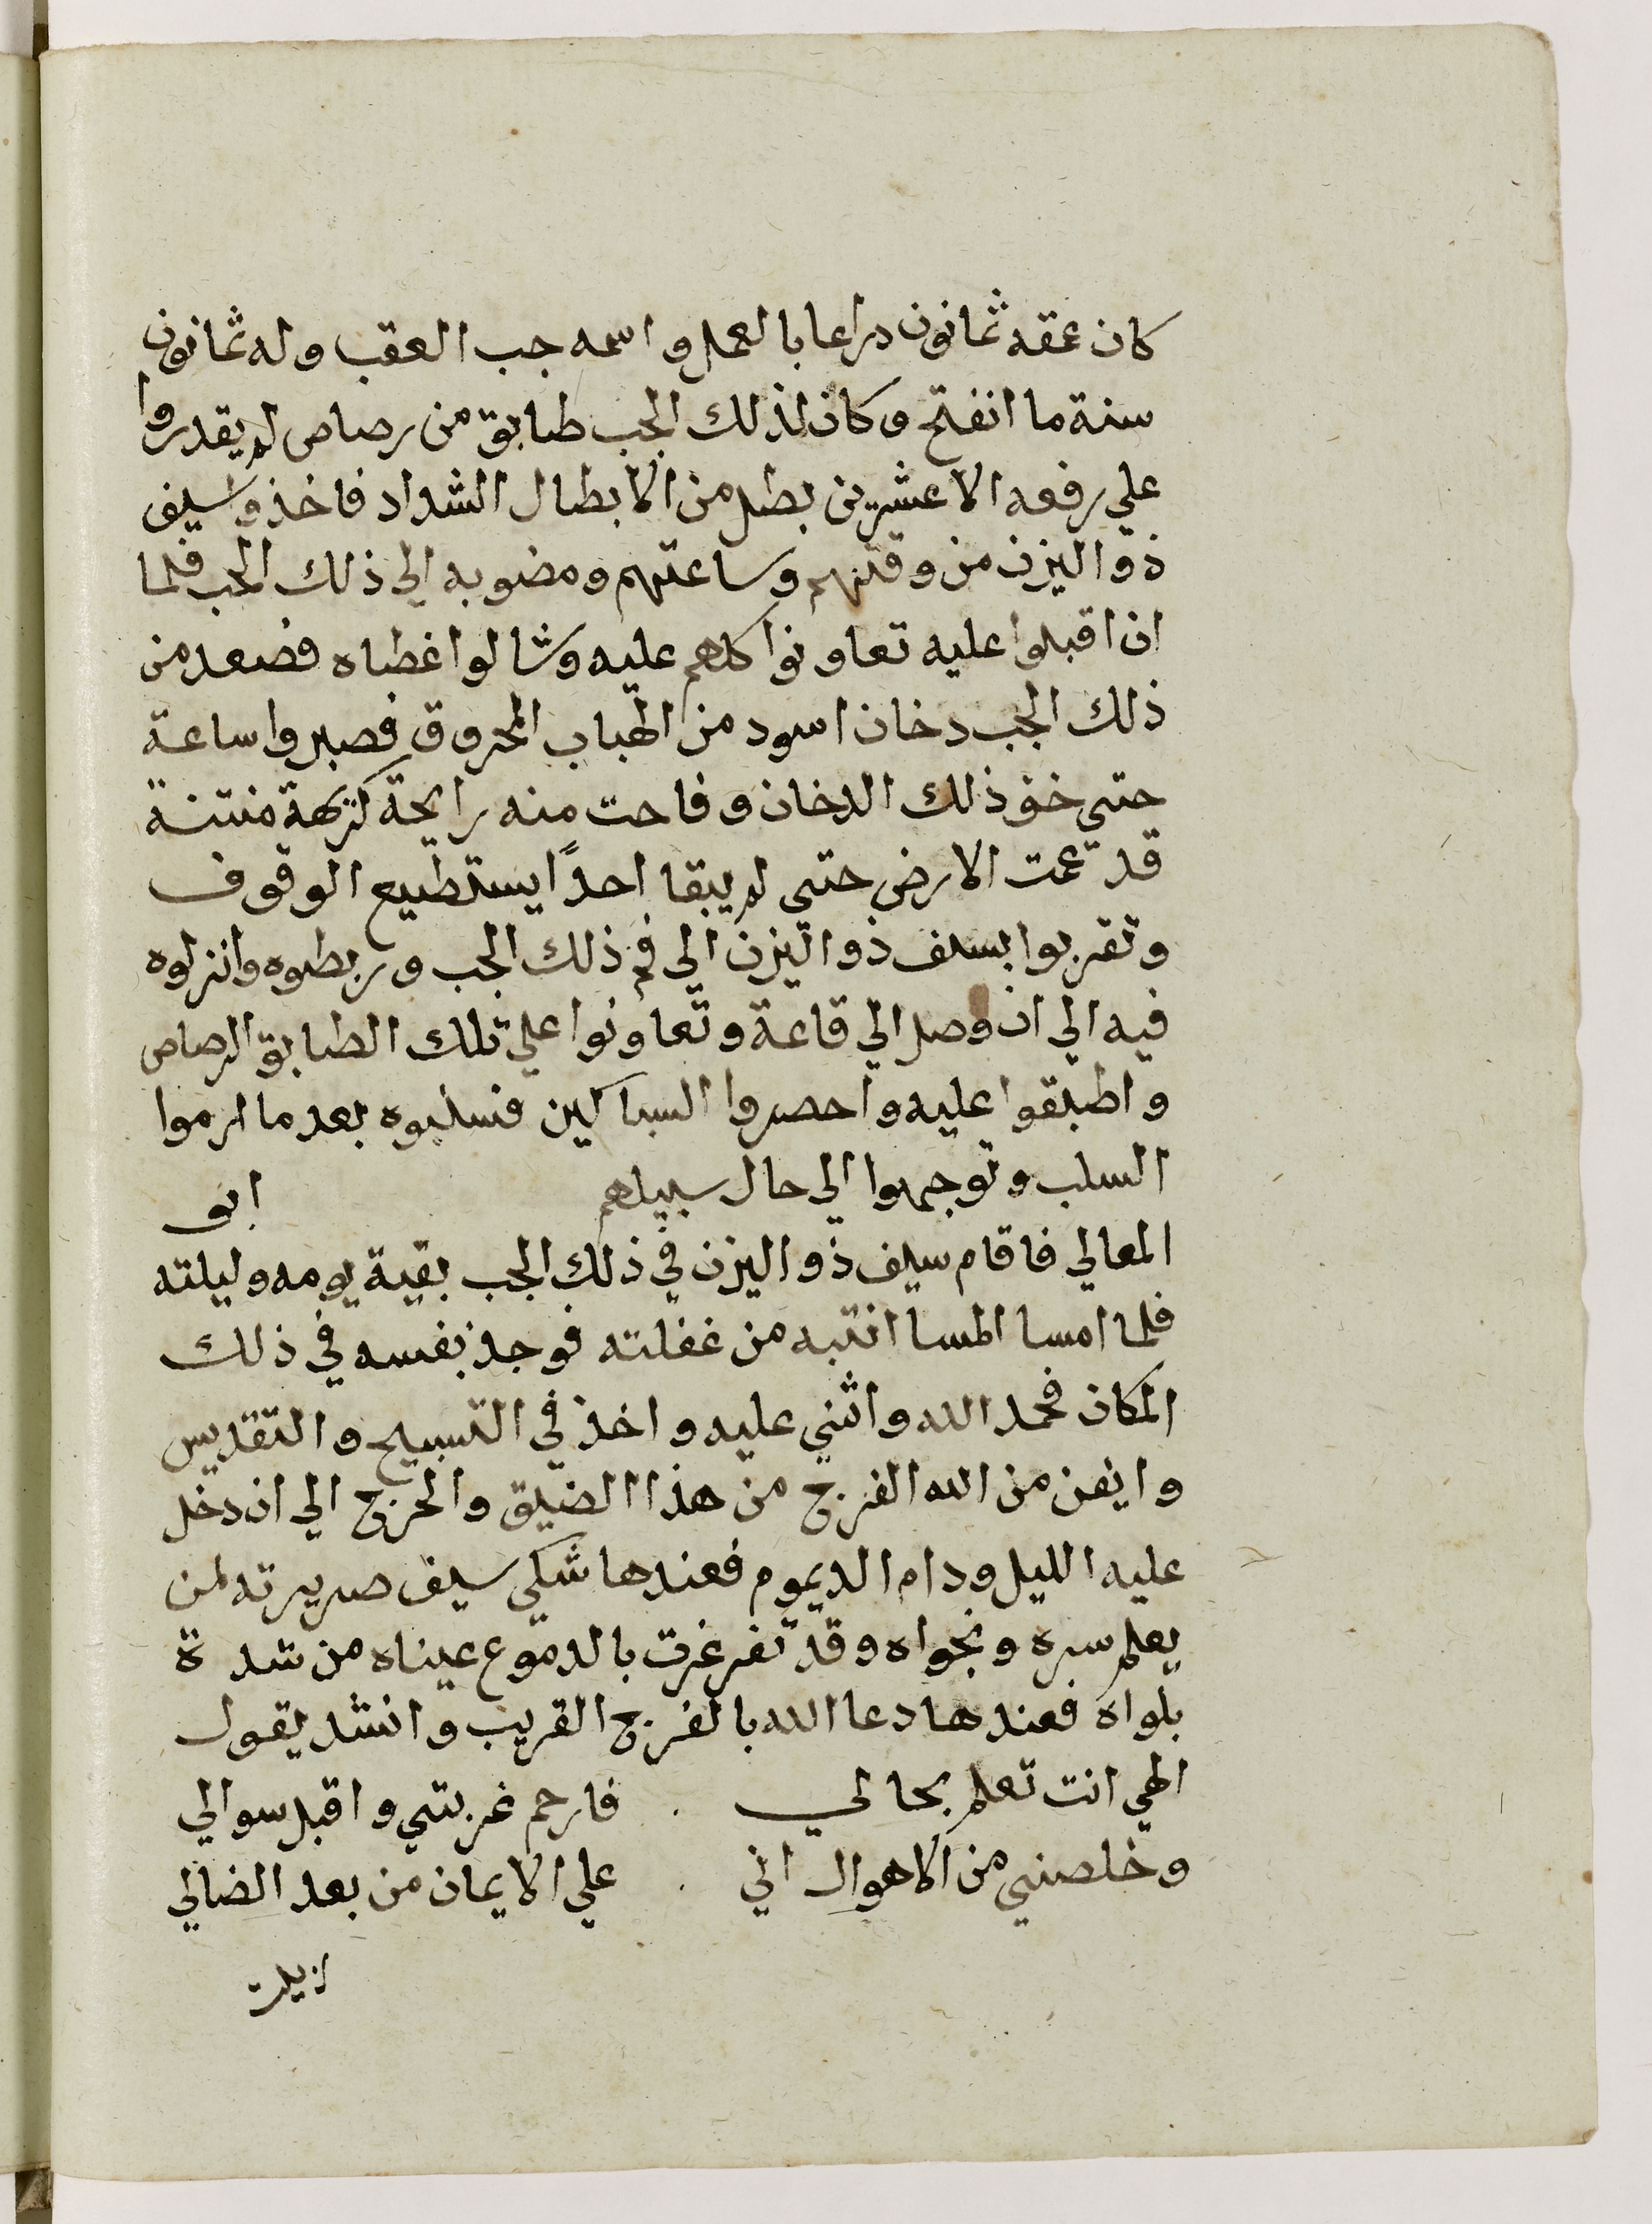 كان عمقه ثمانون دراعا بالعمل واسمه جب العقب وله ثمانون
سنة ما انفتح وكان لذلك الجب طابق من رصاص لم يقدروا
علي رفعه الا عشرين بطل من الابطال الشداد فاخذوا سيف
ذو اليزن من وقتهم وساعتهم ومضوا به الي ذلك الجب فلما
ان اقبلوا عليه تعاونوا كلهم عليه وشالوا غطاه فصعد من
ذلك الجب دخان اسود من الهباب المحروق فصبروا ساعة
حتي خف ذلك الدخان وفاحت منه رايحة كريهة منتنة
قد عمت الارض حتي لم يبقا احدًا يستطيع الوقوف
وتقربوا بسيف ذو اليزن الي فم ذلك الجب وربطوه وانزلوه
فيه الي ان وصل الي قاعة وتعاونوا علي تلك الطابق الرصاص
واطبقوا عليه واحصروا السباكين فسلبوه بعد ما ارموا
السلب وتوجهوا الي حال سبيلهم ابو
المعالي فاقام سيف ذو اليزن في ذلك الجب بقية يومه وليلته
فلما امسا المسا انتبه من غفلته فوجد نفسه في ذلك
المكان فحمد الله واثني عليه واخذ في التسبيح والتقديس
وايقن من الله الفرج من هذا الضيق والحرج الي ان دخل
عليه الليل ودام الديموم فعندها شكي سيف صريرته لمن
يعلم سره ونجواه وقد تغرغرت بالدموع عيناه من شدة
بلواه فعندها دعا الله بالفرج القريب وانشد يقول
الهي انت تعلم بحالي . فارحم غربتي واقبل سوالي
وخلصني من الاهوال اني . علي الايمان من بعد الضالي